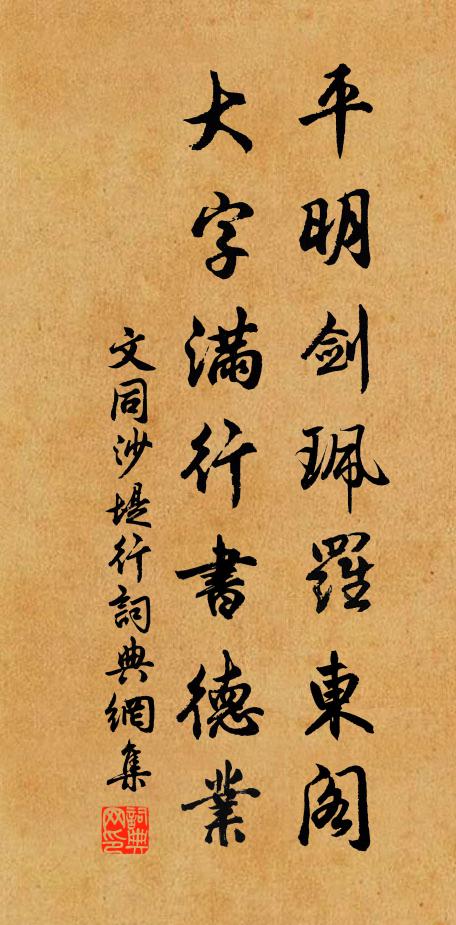 平明劍珮羅東閣
大字滿行書德業
文同沙堤行詞典網集
詞典网印